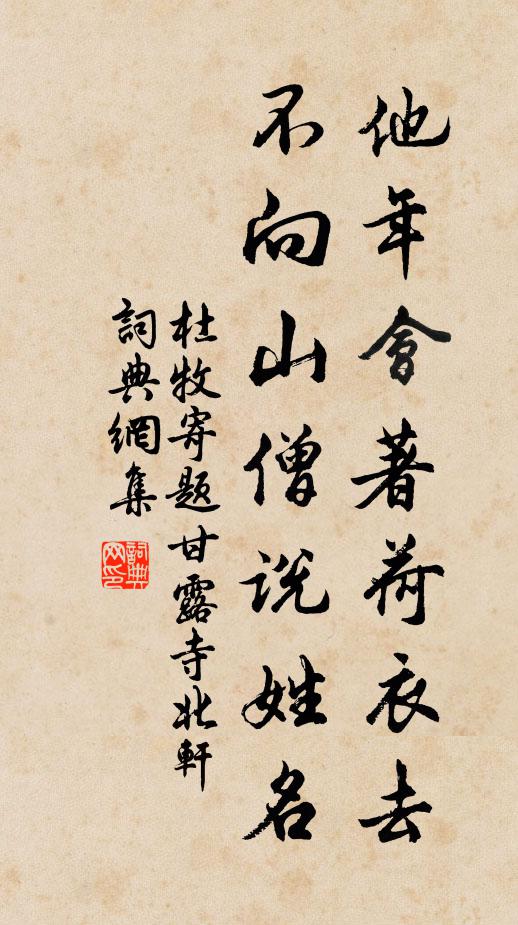 他年會著荷衣去
不向山僧説姓名
杜牧寄题甘露寺北軒
詞典網集
詞典
网印